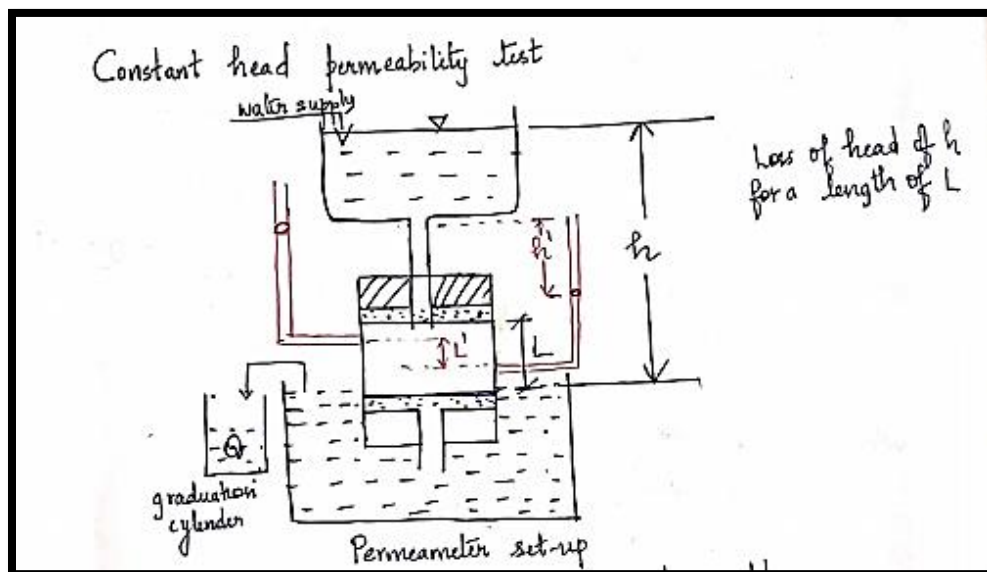 Constant head permeability test
water supply
Loss of head of h
for a length of L
h'
h
L'
L
Q
graduation
cylinder
Permeameter set-up